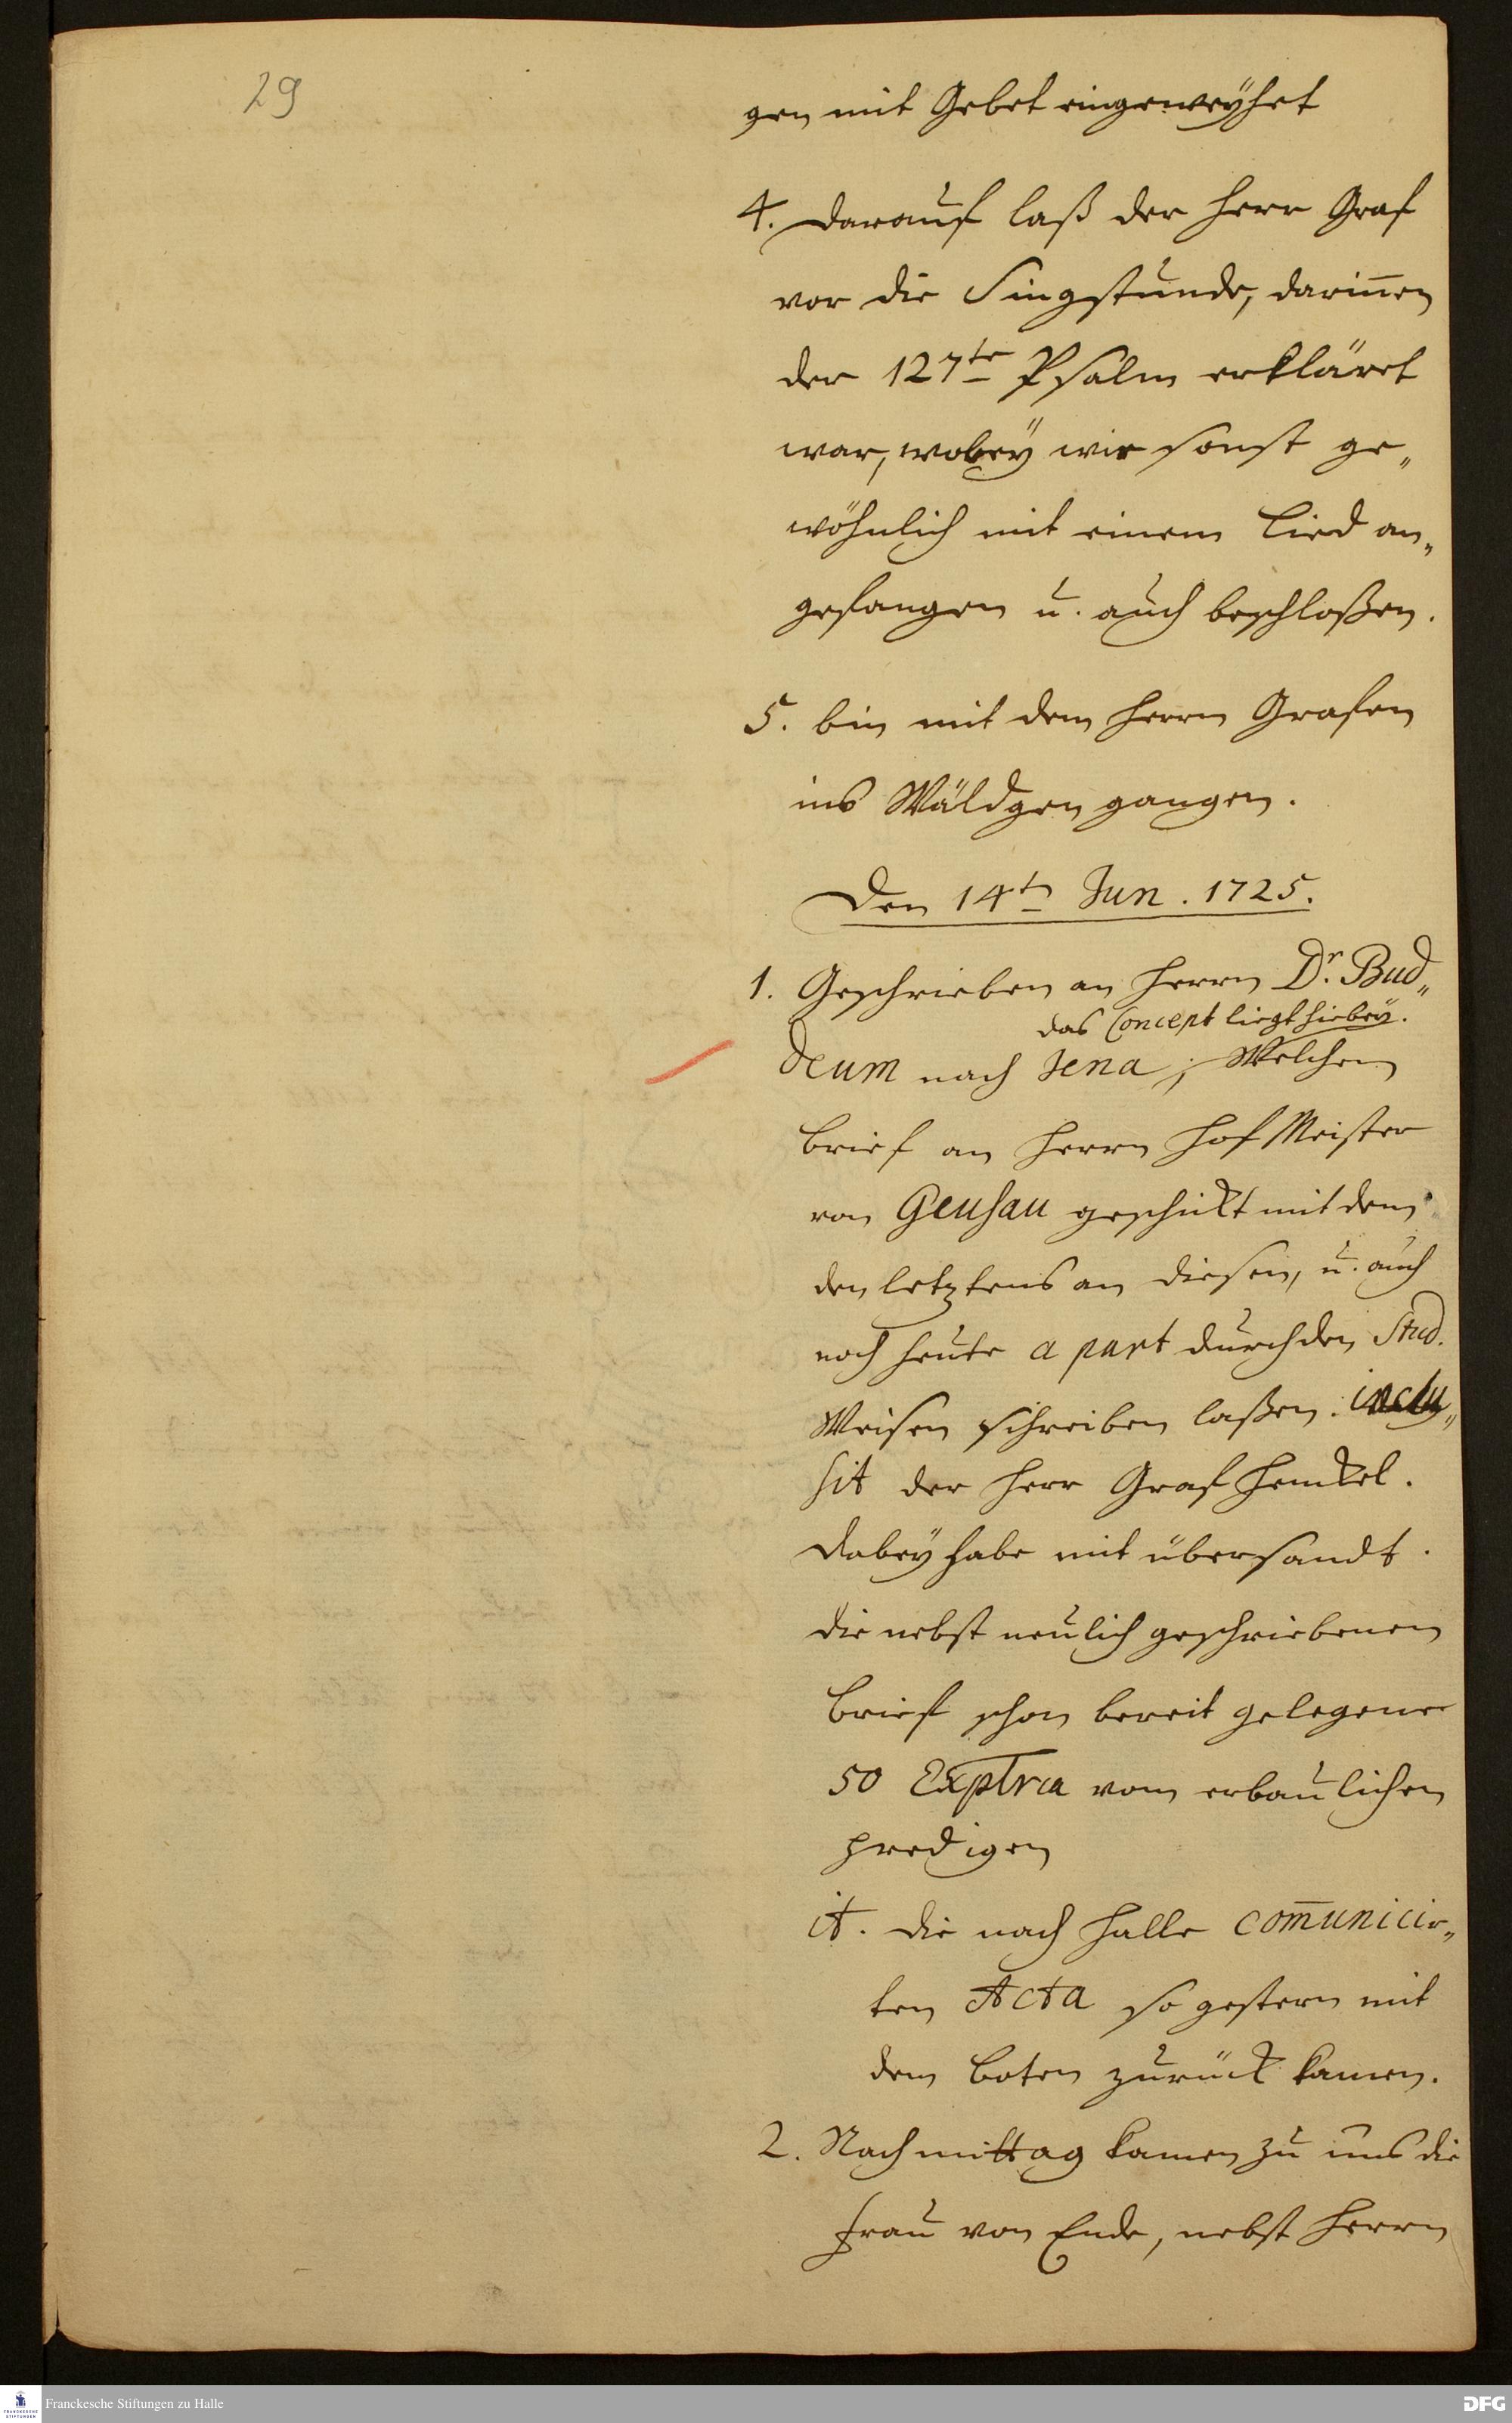 29
gen mit Gebet eingeweyhet
4. Darauf laß der Herr Graf
vor die Singstunde, darin̄en
der 127te Psalm erkläret
war, wobeÿ wie sonst ge„
wöhnlich mit einem Lied an„
gefangen u. auch beschloßen.
5. bin mit dem Herrn Grafen
ins Wäldgen gangen.
Den 14tn Jun. 1725.
1. Geschrieben an Herrn Dr. Bud„
das Concept liegt hiebeÿ.
deum nach Jena; Welchen
brief an Herrn Hof Meister
von Geusau geschickt mit dem
den letztens an diesen, u. auch
noch heute a part durch den Stud.
Weisen schreiben laßen. inclu„
sit der Herr Graf Henckel.
Dabeÿ habe mit übersandt.
die nebst neulich geschriebenen
brief schon bereit gelegene
50 Explria vom erbaulichen
predigen
it. die nach Halle com̄unicir„
ten Acta so gestern mit
dem boten zurück kamen.
2. Nachmittag kamen zu uns die
Frau von Ende, nebst Herrn
FRANCKESCHE STIFTUNGEN
Franckesche Stiftungen zu Halle
DFG